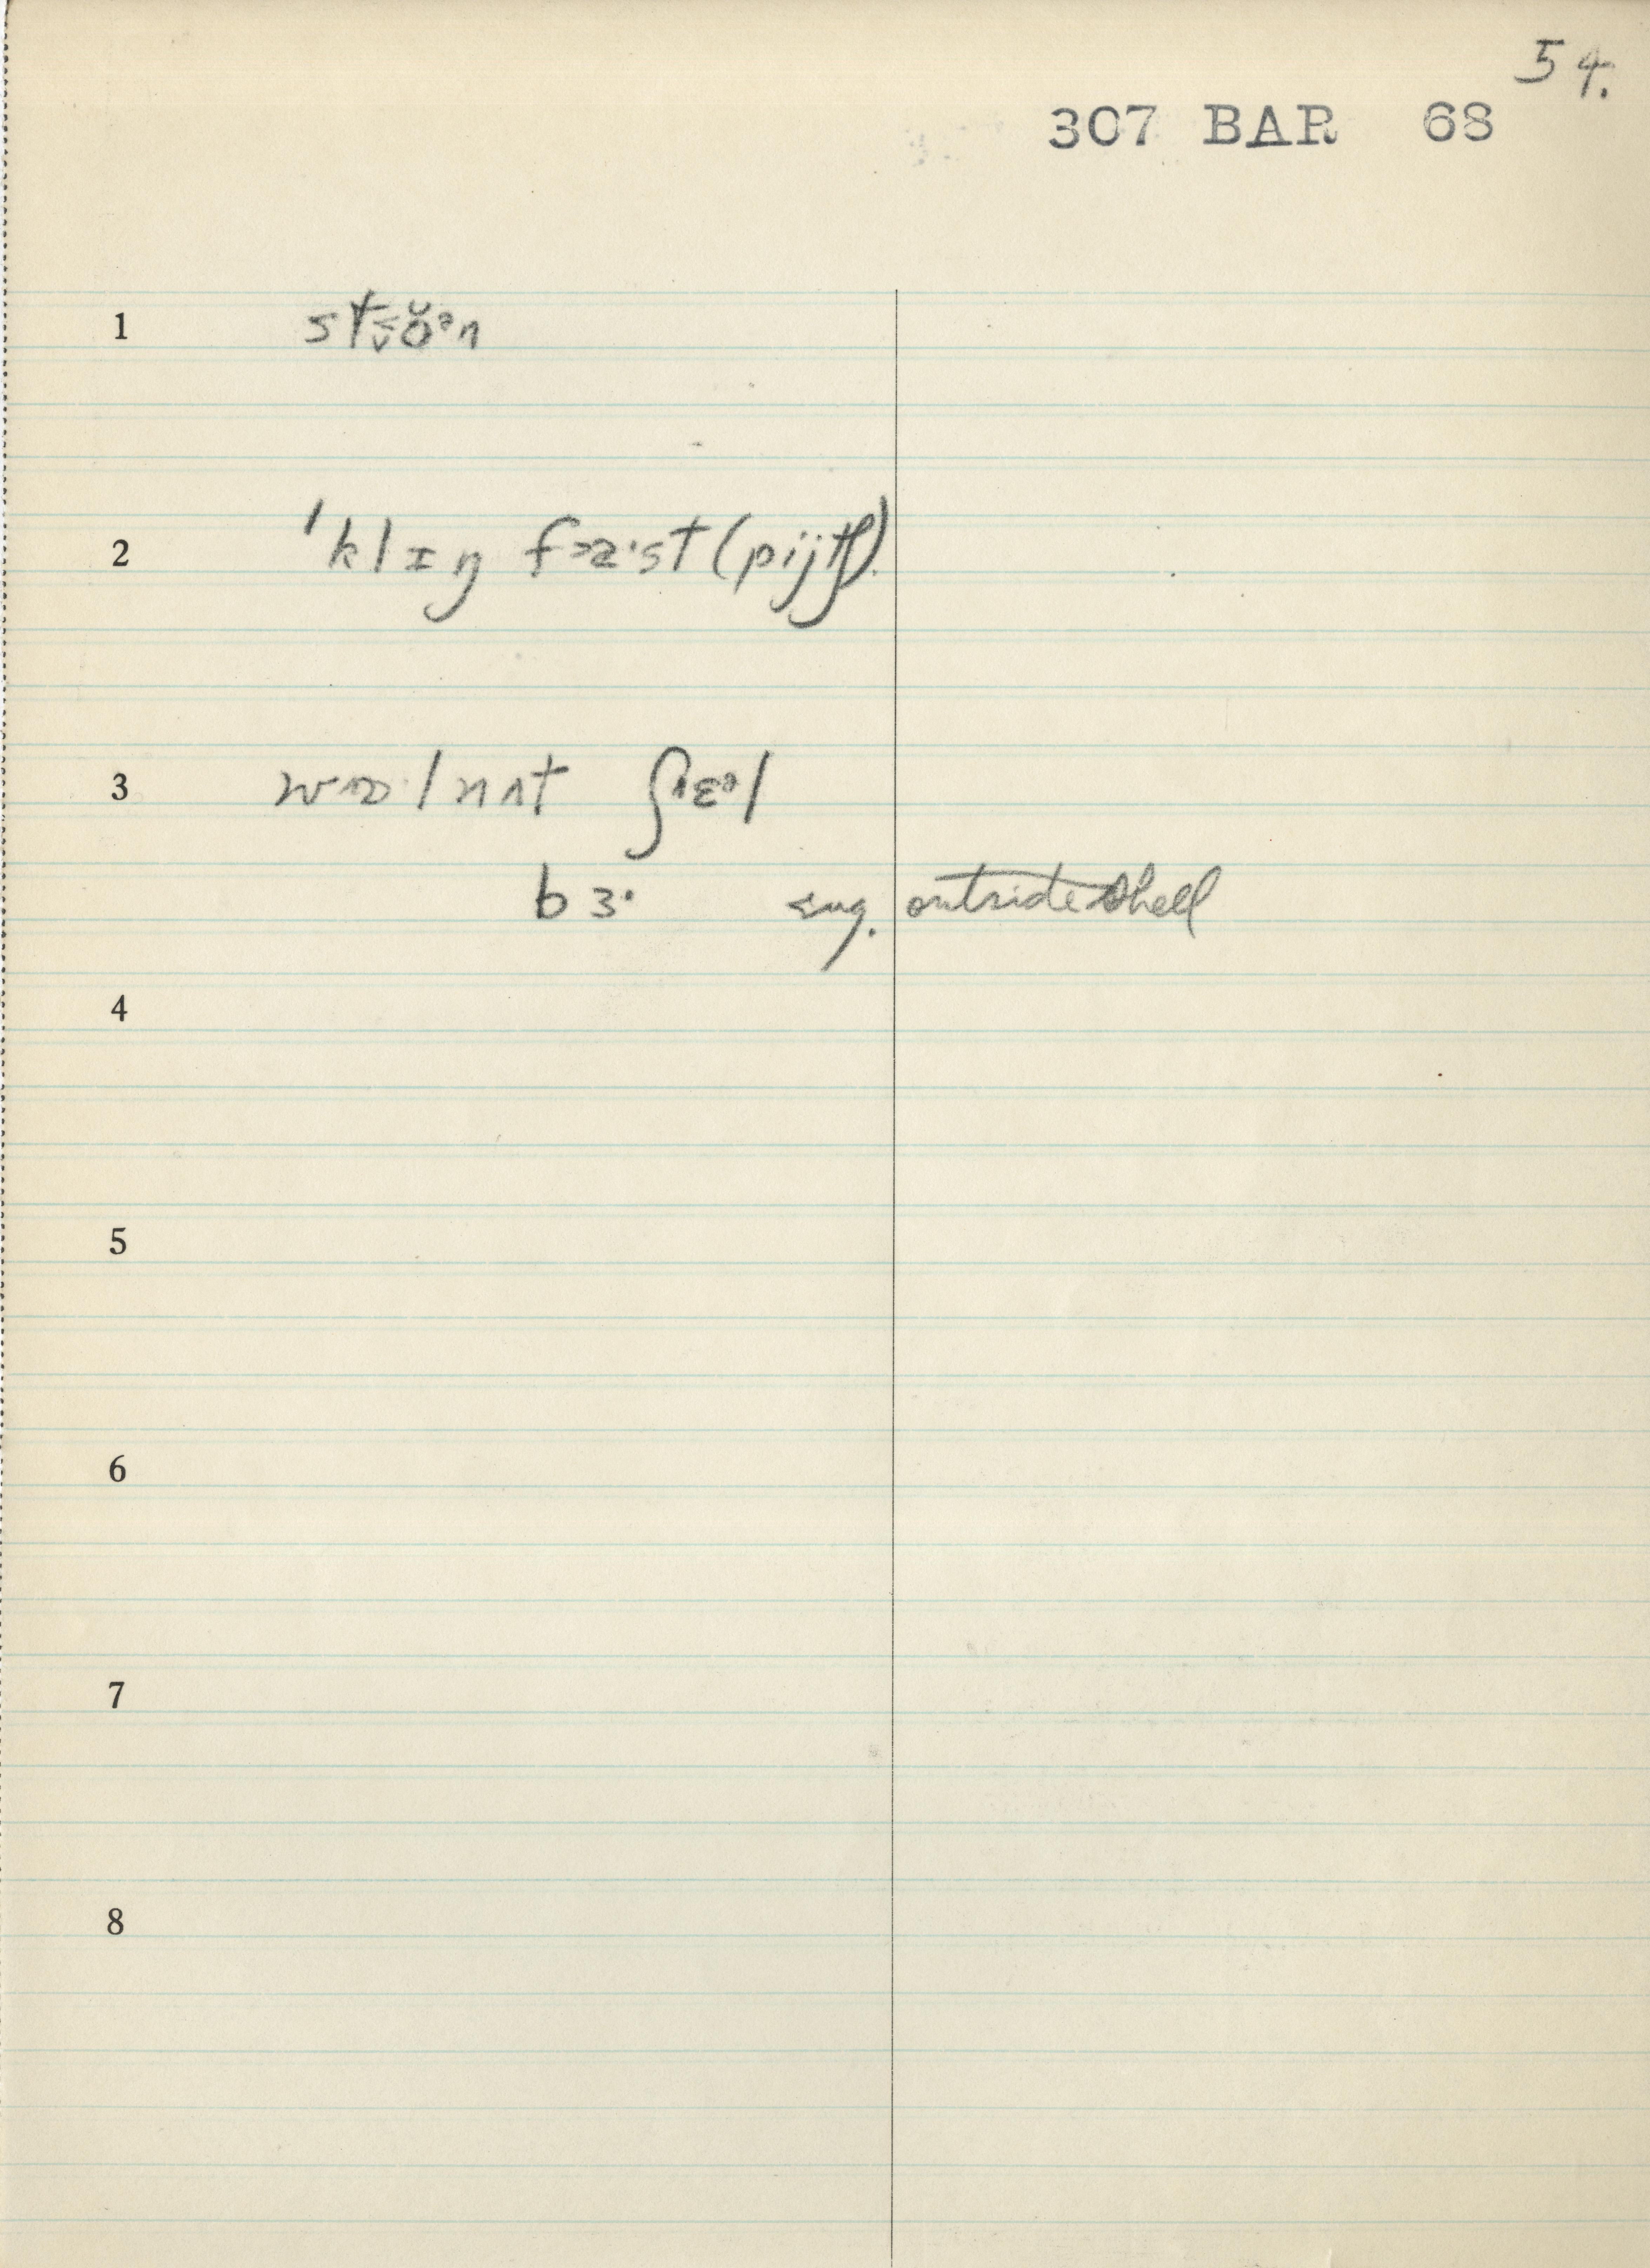 54.
307 BAR 68
1 st
2 ˈklɪŋ fɜɹ·st (pijtʃ).
3 wɒ·lnʌt ʃɛᵊl
bɜ· sug. outside shell
4
5
6
7
8